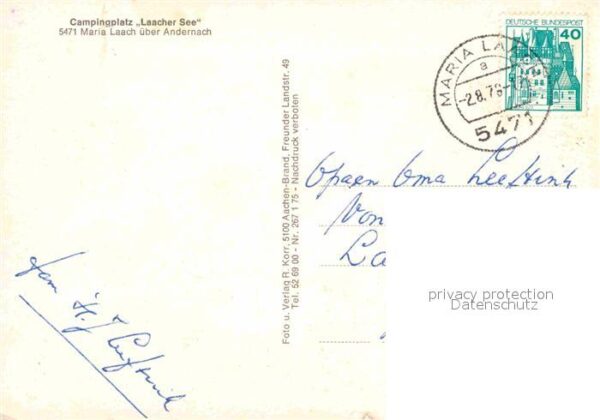 Campingplatz „Laacher See"
5471 Maria Laach über Andernach
Foto u. Verlag R. Korr, 5100 Aachen-Brand, Freunder Landstr. 49
Tel. 52 69 00 - Nr. 267 1 75 - Nachdruck verboten
DEUTSCHE BUNDESPOST
40
MARIA LAA
a
-2.8.78-
5471
Oma
Von
La
privacy protection
Datenschutz
Fam H. J.